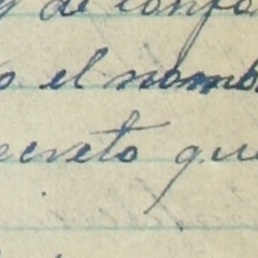 y de confo
o el nomb
ecreto que